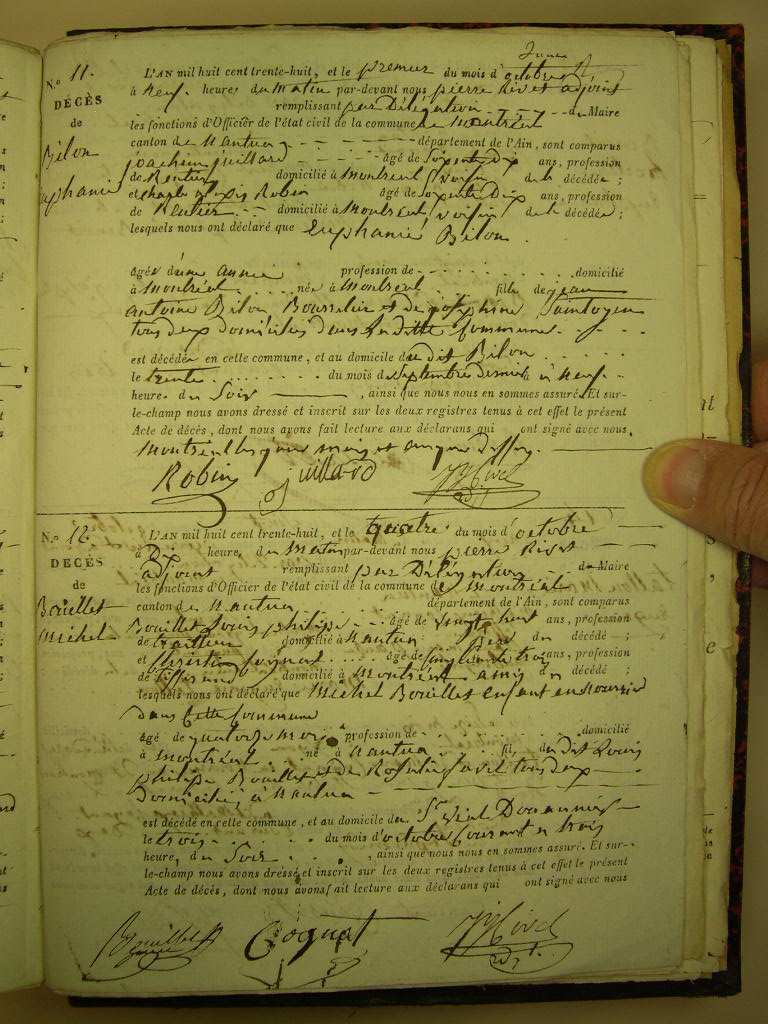 N.o 11.
DÉCÈS
de
Bilon
L'AN mil huit cent trente-huit, et le premier du mois d'octobre
à neuf heures du matin par-devant nous pierre Rivet adjoint
remplissant par Délégation de Maire
les fonctions d'Officier de l'état civil de la commune de Montréal
canton de Nantua département de l'Ain, sont comparus
joachim juillard âgé de Soixante Dix ans, profession
de Rentier domicilié à Montreal voisin de la décédée ;
et Robin âgé de Soixante Dix ans, profession
de Rentier domicilié à Montreal voisin de la décédée ;
lesquels nous ont déclaré que Euphanie Bilon
agée d'une année profession de domicilié
à Montréal née à Montreal fille de jean
antoine Bilon Bourrelier et de josephine
tous deux domiciliés dans la ditte Commune
est décédée en cette commune, et au domicile du dit Bilon
le trente du mois de septembre dernier à neuf
heures du Soir , ainsi que nous nous en sommes assuré. Et sur-
le-champ nous avons dressé et inscrit sur les deux registres tenus à cet effet le présent
Acte de décès, dont nous avons fait lecture aux déclarans qui ont signé avec nous.
Montreal les jour mois et an que dessus
Robin juillard Rivet adjt
N.o 12.
DÉCÈS
de
Bouillet
Michel
L'AN mil huit cent trente-huit, et le quatre du mois d'octobre
à Dix heures du Matin par-devant nous pierre Rivet
adjoint remplissant par Délégation de Maire
les fonctions d'Officier de l'état civil de la commune de Montréal
canton de Nantua département de l'Ain, sont comparus
Bouillet Louis philipe âgé de vingt huit ans, profession
de domicilié à Nantua père du décédé ;
et Coignat âgé de Cinquante trois ans, profession
de tisserand domicilié à Montréal ami du décédé ;
lesquels nous ont déclaré que Michel Bouillet enfant en nourrice
dans Cette Commune
agé de quatorze mois profession de domicilié
à Montréal né à Nantua fils du dit Louis
philipe Bouillet et de Rosalie tous deux
Domiciliés à Nantua
est décédé en cette commune, et au domicile du Sr. Vial Douannier
le trois du mois d'octobre Courant à trois
heures du Soir , ainsi que nous nous en sommes assuré. Et sur-
le-champ nous avons dressé et inscrit sur les deux registres tenus à cet effet le présent
Acte de décès, dont nous avons fait lecture aux déclarans qui ont signé avec nous
Bouillet Coignat Rivet adjt.